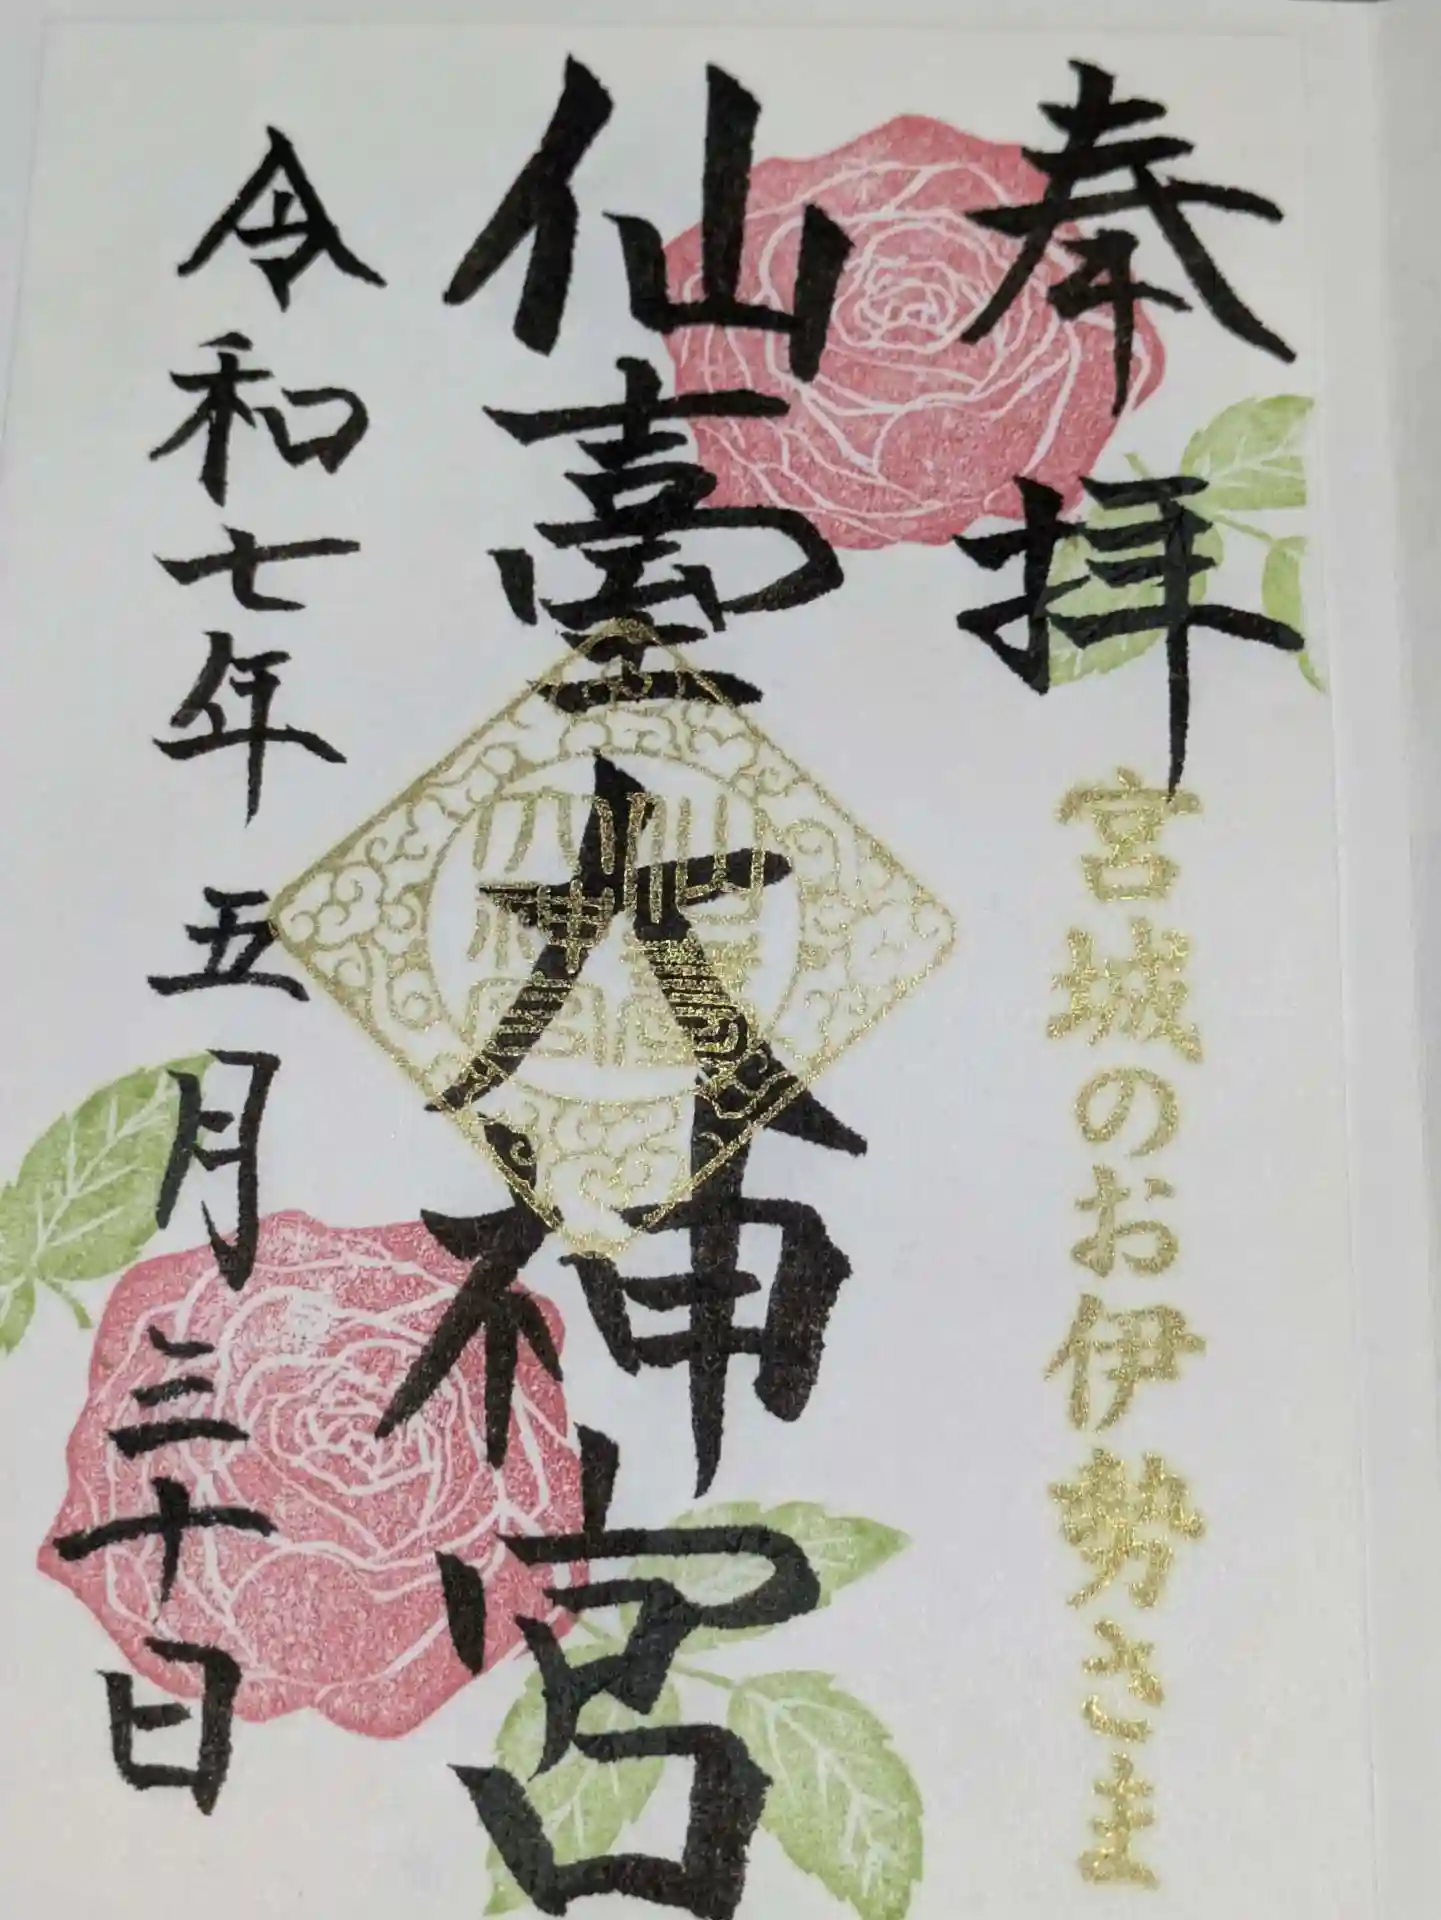 奉拝
宮城のお伊勢さま
仙臺大神宮
仙臺
大神宮
令和七年五月三十日